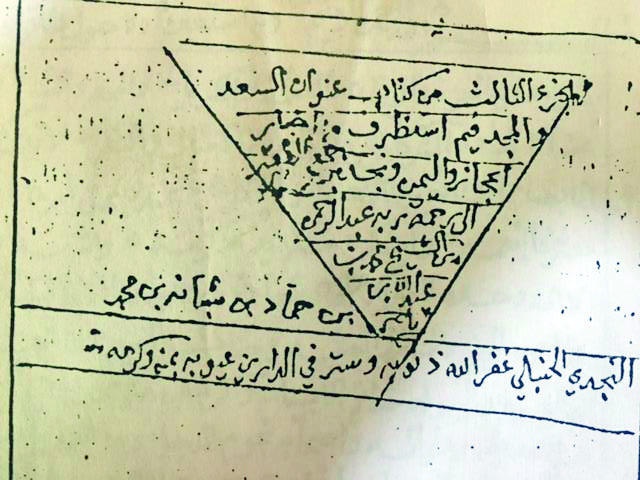 الجزء الثالث من كتاب عنوان السعد
والمجد فيم استظرف من اخبار
الحجاز واليمن ونجد
الى رحمة ربه عبد الرحمن
بن الشيخ محمد بن
عبد الله بن
ناصر
بن حماد بن شبانه بن محمد
النجدي الحنبلي غفر الله ذنوبه وستر في الدارين عيوبه بمنه وكرمه